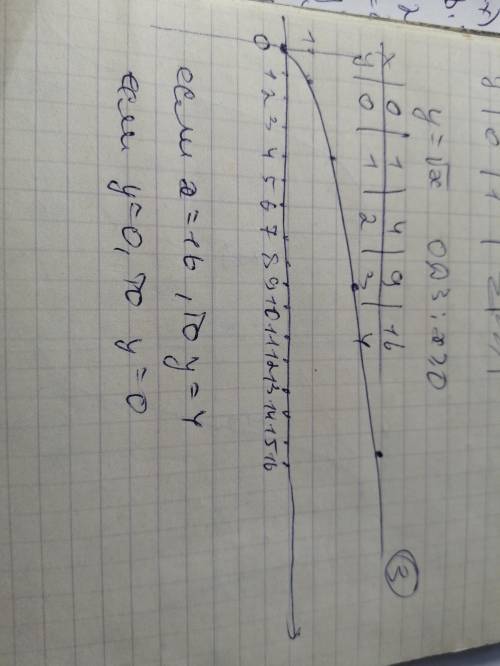 y | 0 | 1 | 2
y=√x ОДЗ: x≥0
x | 0 | 1 | 4 | 9 | 16
y | 0 | 1 | 2 | 3 | 4
1
0 1 2 3 4 5 6 7 8 9 10 11 12 13 14 15 16
если x=16, то y=4
если y=0, то y=0
3